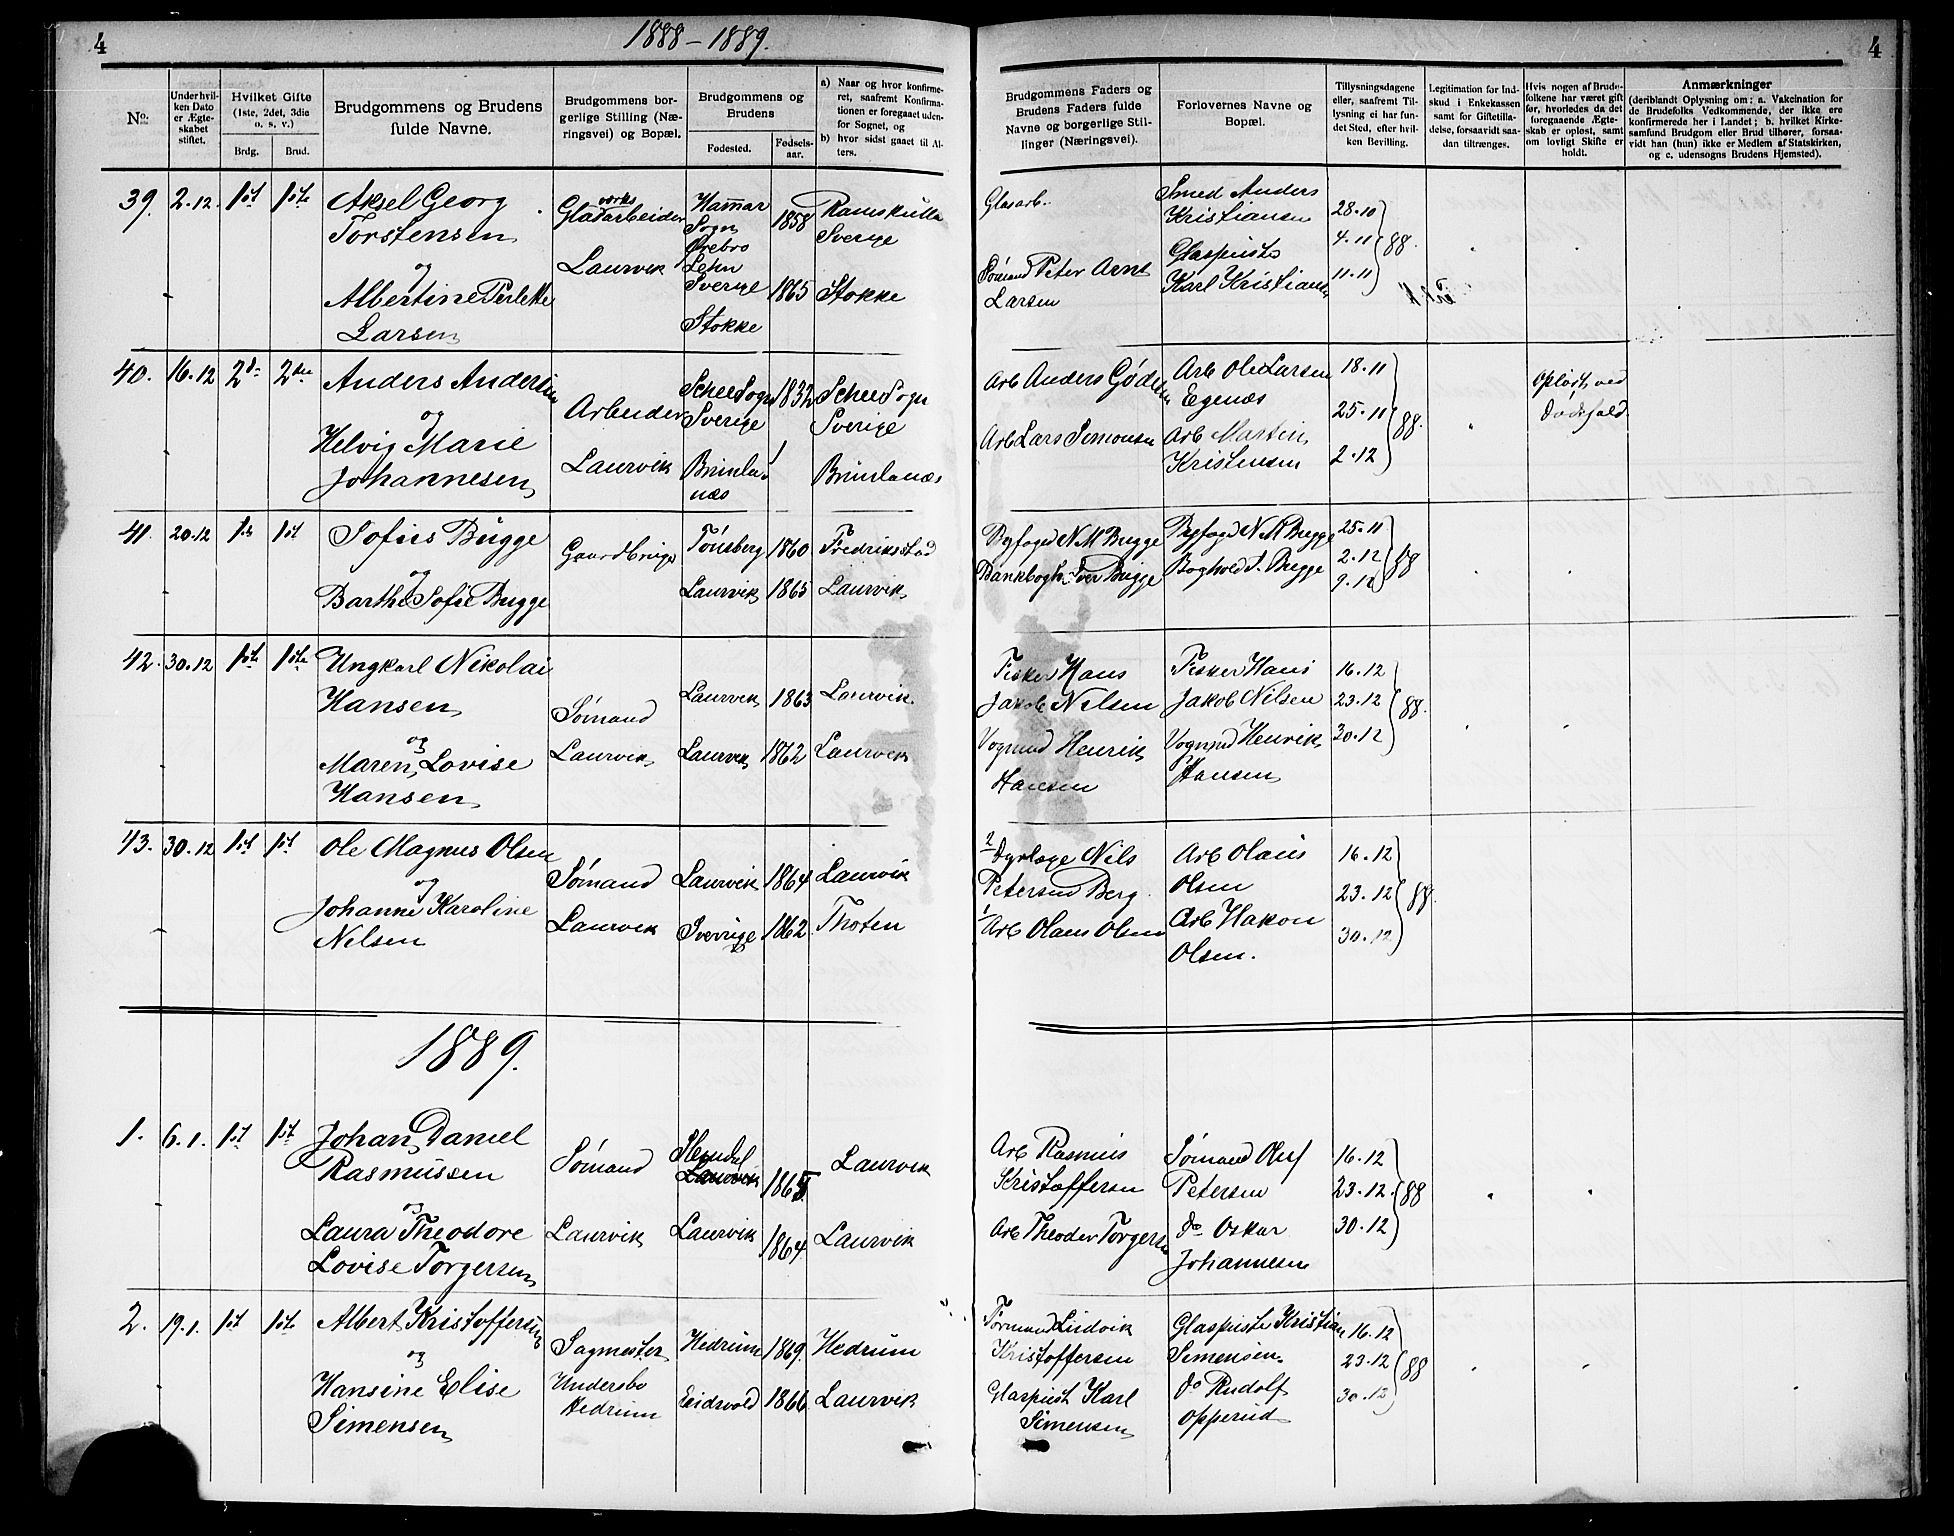 4
1888-1889.
4
No.
Under hvil-
ken Dato
er Ægte-
skabet
stiftet.
Hvilket Gifte
(1ste, 2det, 3die
o. s. v.)
Brdg.
Brud.
Brudgommens og Brudens
fulde Navne.
Brudgommens bor-
gerlige Stilling (Næ-
ringsvei) og Bopæl.
Brudgommens og
Brudens
Fødested.
Fødsels-
aar.
a) Naar og hvor konfirme-
ret, saafremt Konfirma-
tionen er foregaaet uden-
for Sognet, og
b) hvor sidst gaaet til Al-
ters.
Brudgommens Faders og
Brudens Faders fulde
Navne og borgerlige Stil-
linger (Næringsvei).
Forlovernes Navne og
Bopæl.
Tillysningsdagene
eller, saafremt Til-
lysning ei har fun-
det Sted, efter hvil-
ken Bevilling.
Legitimation for Ind-
skud i Enkekassen
samt for Giftetilla-
delse, forsaavidt saa-
dan tiltrænges.
Hvis nogen af Brude-
folkene har været gift
før, hvorledes da det
foregaaende Ægte-
skab er opløst, samt
om lovligt Skifte er
holdt.
Anmærkninger
(deriblandt Oplysning om: a. Vakcination for
de Brudefolks Vedkommende, der ikke ere
konfirmerede her i Landet; b. hvilket Kirke-
samfund Brudgom eller Brud tilhører, forsaa-
vidt han (hun) ikke er Medlem af Statskirken,
og c. udensogns Brudens Hjemsted).
39. 2.12. 1st 1ste
Aksel Georg
Torstensen
og
Albertine Perlette
Larsen
værks
Glasarbeider
Laurvik
Hammar
Sogn
Ørebro
Lehn
Sverige
Stokke
1858
1865
Ramskulla
Sverige
Stokke
Glasarb.
Sømand Peter Arnt
Larsen
Smed Anders
Kristiansen
Glaspuster
Karl Kristiansen
28.10
4.11
11.11
88.
40. 16.12 2d 2den
Anders Andersen
og
Helvig Marie
Johannesen
Arbeider
Laurvik
Schee Sogn
Sverige
Brunla-
næs
1832
Schee Sogn
Sverige
Brunlanæs
Arb Anders Gødesen
Arb Lars Simonsen
Arb Ole Larsen
Egenæs
Arb Martin
Kristensen
18.11
25.11
2.12
88.
Opløst ved
Dødsfald.
41. 20.12 1ste 1st
Sofus Bugge
og
Barthe Sofie Bugge
Gaardbruger
Tønsberg
Laurvik
1860
1865
Fredriksstad
Laurvik
Byfoged N M Bugge
Bankbogh. Iver Bugge
Byfoged N M Bugge
Boghold I. Bugge
25.11
2.12
9.12
88
42. 30.12 1ste 1ste
Ungkarl Nikolai
Hansen
og
Maren Lovise
Hansen
Sømand
Laurvik
Laurvik
Laurvik
1863
1862
Laurvik.
Laurvik
Fisker Hans
Jakob Nilsen
Vognmd Henrik
Hansen
Fisker Hans
Jakob Nilsen
Vognmd Henrik
Hansen
16.12
23.12
30.12
88.
43. 30.12 1st 1st
Ole Magnus Olsen
og
Johanne Karoline
Nelsen
Sømand
Laurvik
Laurvik
Sverrige
1864
1862
Laurvik
Thoten
2 Dyrlæge Nils
Petersen Berg.
1 Arb Olaus Olsen
Arb Olaus
Olsen
Arb Hakon
Olsen.
16.12
23.12
30.12
88.
1889.
1. 6.1. 1st 1st
Johan Daniel
Rasmussen
og
Laura Theodore
Lovise Torgersen
Sømand
Laurvik
Slemdal
Laurvik
Laurvik
1865
1864
Laurvik
Laurvik
Arb Rasmus
Kristoffersen
Arb Theodor Torgersen
Sømand Oluf
Petersen
do Oskar
Johannesen
16.12
23.12.
30.12
88
2. 19.1. 1st 1ste
Albert Kristoffersen
og
Hansine Elise
Simensen
Sagmester
Undersbo
Hedrum
Hedrum
Eidsvold
1869.
1866
Hedrum
Laurvik
Formand Ludvik
Kristoffersen
Glaspust Karl
Simensen
Glaspuster Kristian
Simensen.
do Rudolf
Opperud
16.12
23.12
30.12
88